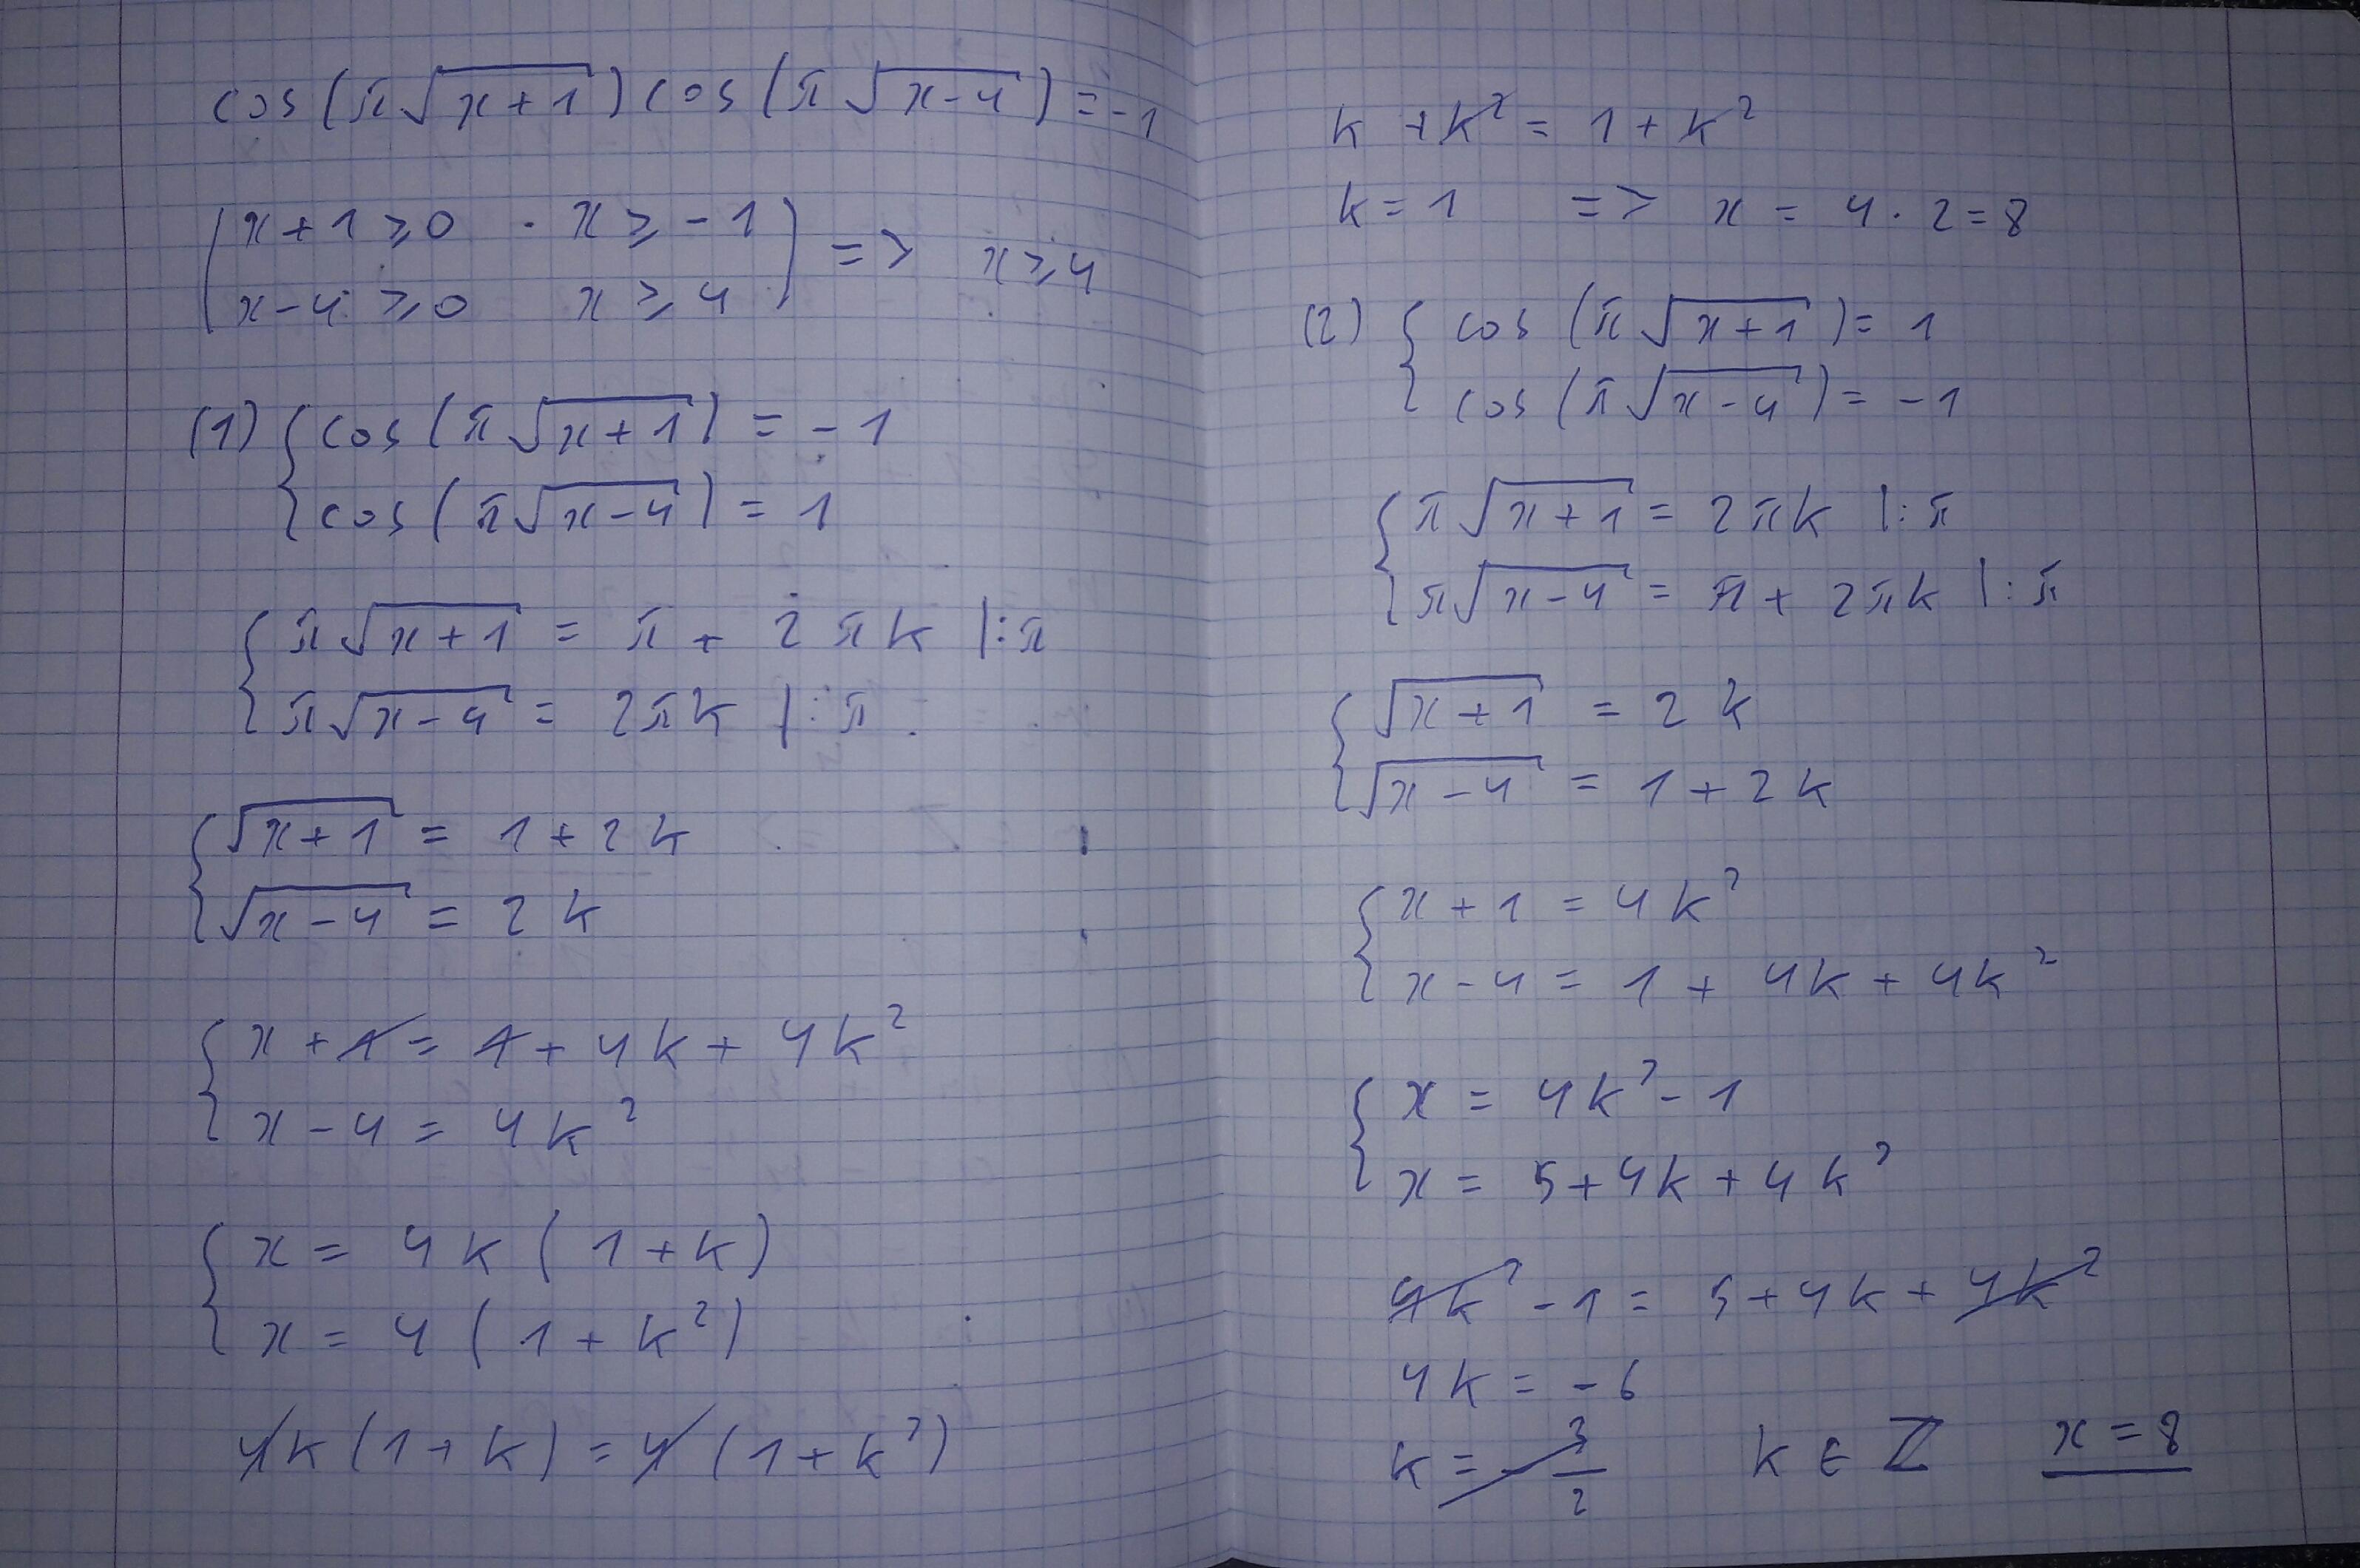 cos(π√(x+1)) cos(π√(x-4)) = -1
x+1 ≥ 0 · x ≥ -1
x-4 ≥ 0 x ≥ 4
=> x ≥ 4
(1) { cos(π√(x+1)) = -1
cos(π√(x-4)) = 1
{ π√(x+1) = π + 2πk |:π
π√(x-4) = 2πk |:π
{ √(x+1) = 1+2k
√(x-4) = 2k
{ x+1 = 1+4k+4k²
x-4 = 4k²
{ x = 4k(1+k)
x = 4(1+k²)
4k(1+k) = 4(1+k²)
k+k² = 1+k²
k=1 => x = 4·2=8
(2) { cos(π√(x+1)) = 1
cos(π√(x-4)) = -1
{ π√(x+1) = 2πk |:π
π√(x-4) = π + 2πk |:π
{ √(x+1) = 2k
√(x-4) = 1+2k
{ x+1 = 4k²
x-4 = 1+4k+4k²
{ x = 4k²-1
x = 5+4k+4k²
4k²-1 = 5+4k+4k²
4k = -6
k = -3/2 k ∈ ℤ x=8